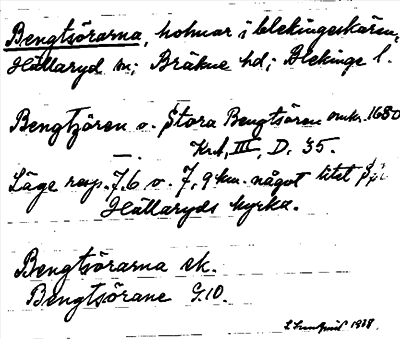 Bengtsörarna, holmar i blekingeskären,
Hällaryd sn; Bräkne hd; Blekinge l.
Bengtzören o. Stora Bengtsören omkr. 1680
KrA, III, D. 35.
Läge resp. 7,6 o. 7,9 km. något litet
Hällaryds kyrka.
Bengtsörarna sk.
Bengtsörane G.10.
1938